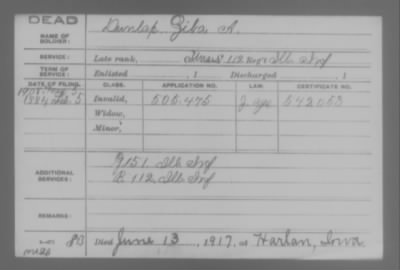 DEAD
NAME OF SOLDIER: Dunlap Ziba A.
SERVICE: Late rank, 112 Reg't Ill Inf
TERM OF SERVICE: Enlisted , 1 Discharged , 1
DATE OF FILING. CLASS. APPLICATION NO. LAW. CERTIFICATE NO.
1884 5 Invalid, 505.475 542053
Widow,
Minor,
ADDITIONAL SERVICES: G 151 Ill Inf
E 112 Ill Inf
REMARKS:
Died June 13, 1917, at Harlan, Iowa